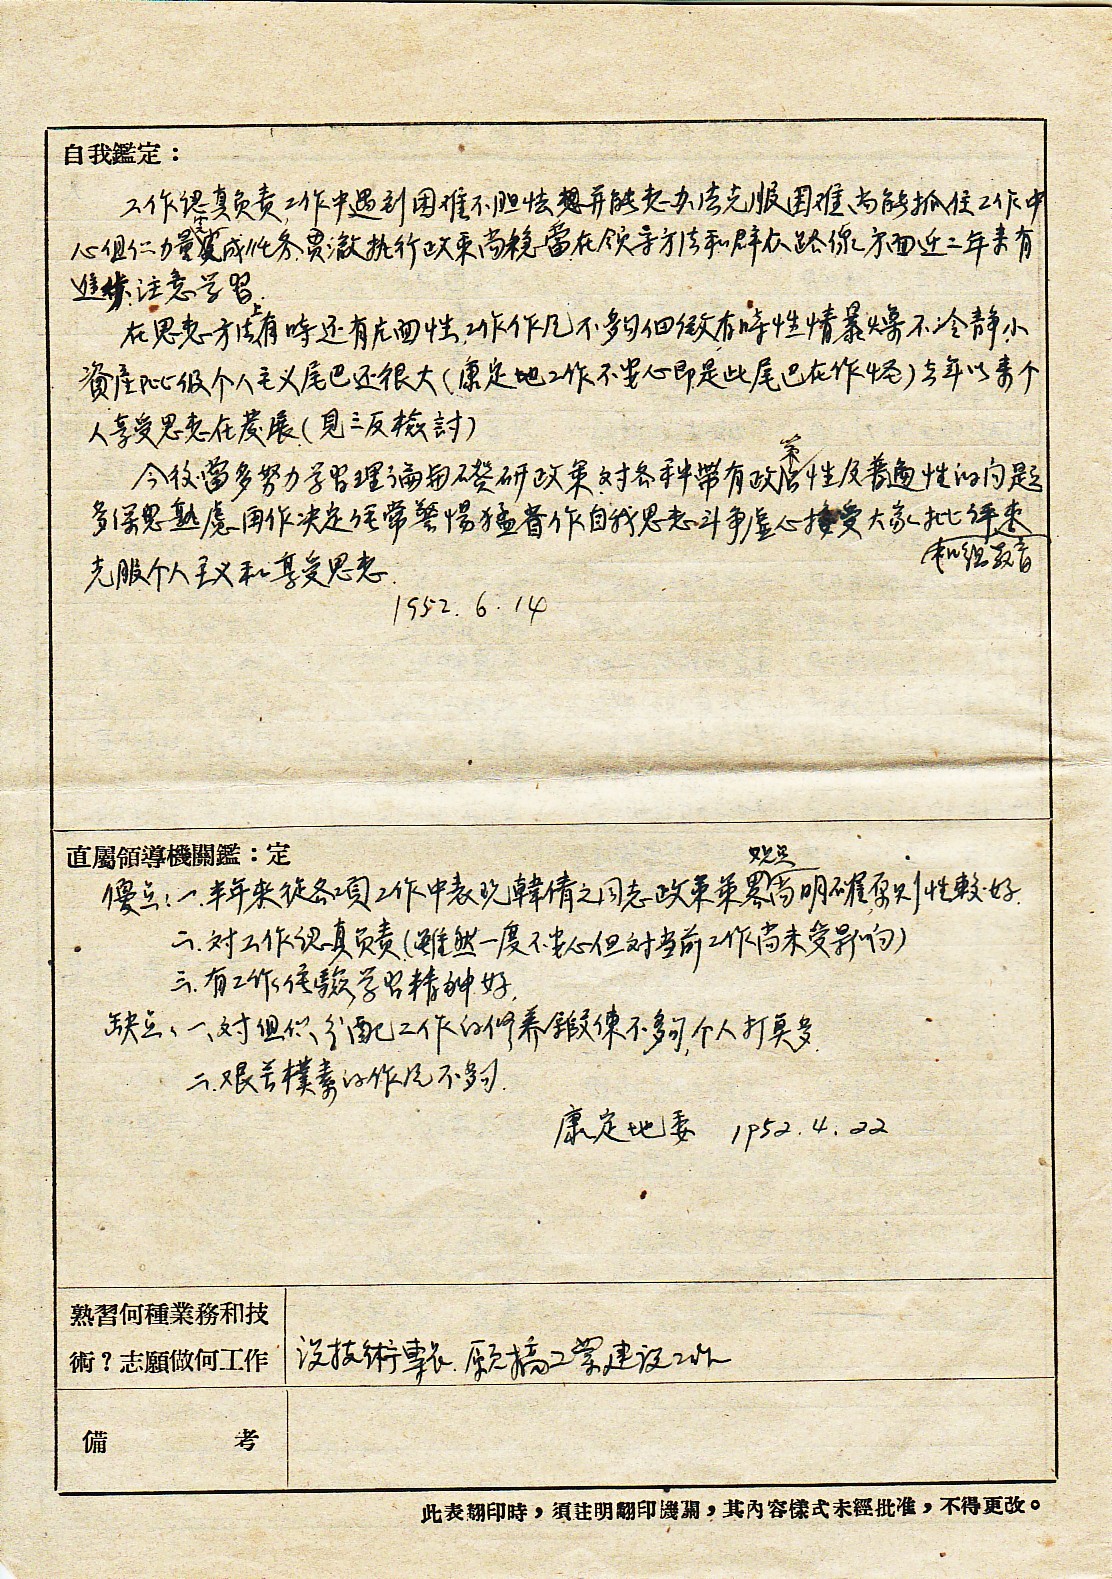 自我鑑定：
工作認真负责，工作中遇到困难不胆怯想并能想办法克服困难，尚能抓住工作中
心组织力量完成任务，贯澈执行政策尚稳當在领导方法和群众路線方面近二年来有
進步，注意学習。
在思想方法上有時还有片面性，工作作风不够细緻有時性情暴燥不冷静，小
資産阶级个人主义尾巴还很大（康定地工作不安心即是此尾巴在作怪）去年以来个
人享受思想在发展（見三反檢討）
今後當多努力学習理論鑽研政策，对各种带有政策性及普遍性的问题
多深思熟慮再作决定，经常警惕猛省作自我思想斗争虚心接受大家批评来
和组织教育
克服个人主义和享受思想.
1952.6.14
直屬領導機關鑑：定
观点
優点：一.半年来從各項工作中表现韓倩之同志政策策畧尚明確，原则性較好.
二.对工作認真负责（雖然一度不安心但对当前工作尚未受影响）
三.有工作经驗，学習精神好，
缺点：一、对组织、分配工作的修养鍛鍊不够，个人打算多
二.艰苦樸素的作风不够.
康定地委 1952.4.22
熟習何種業務和技
術？志願做何工作
没技術專长.願搞工業建设工作
備 考
此表翻印時，須註明翻印機關，其內容樣式未經批准，不得更改。